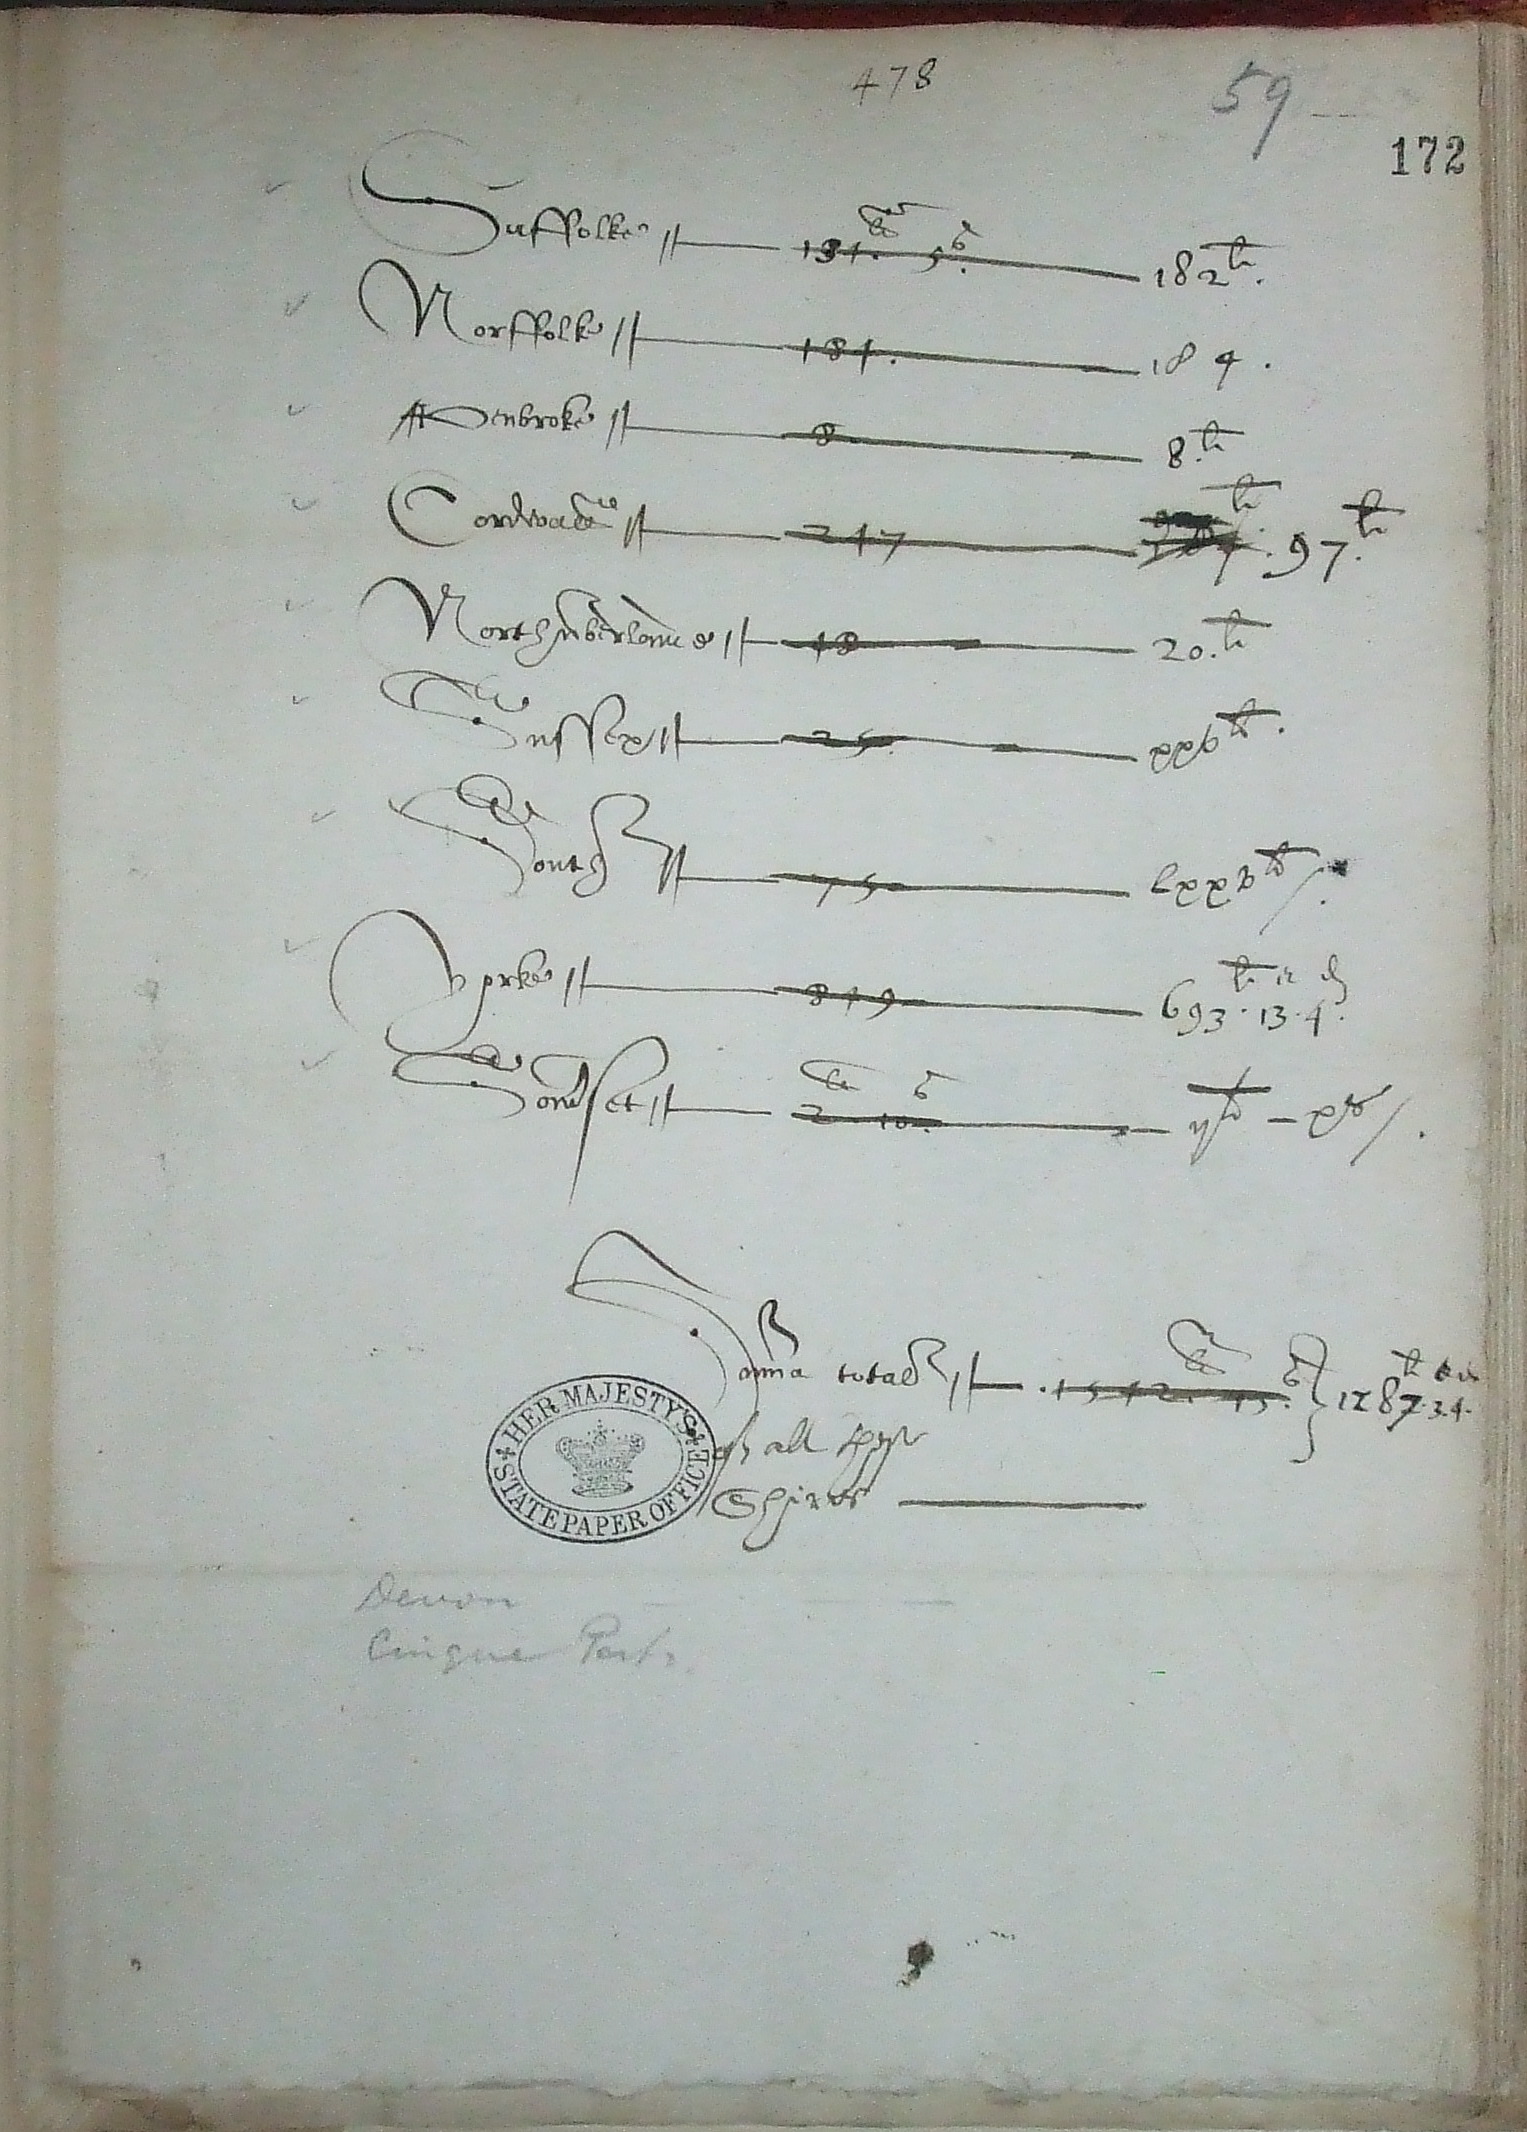 478
59
172
Suffolke 131. 5. 182li.
Norffolke 184. 184.
Penbroke 8. 8.li
Cornwall 247 97.li
Northumberlande 18 20.li
Sussex 25. xxvli.
South 75 lxxvli
Yorke 849 693li. 13. 4.
Somerset 2. 10. ijli - xs
Somma totall 1542. 15. 1287li. 3. 4.
of all thes
Shires
HER MAJESTY'S STATE PAPER OFFICE
Devon
Cinque Ports